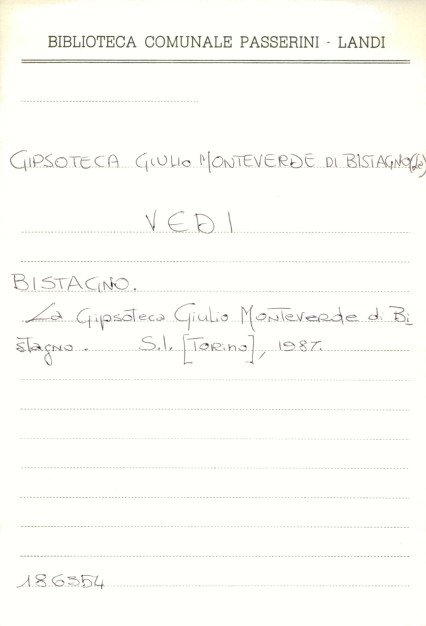 BIBLIOTECA COMUNALE PASSERINI - LANDI
GIPSOTECA GIULIO MONTEVERDE DI BISTAGNO (La)
VEDI
BISTAGNO.
La Gipsoteca Giulio Monteverde di Bi
stagno. S.l. [Torino], 1987.
186354